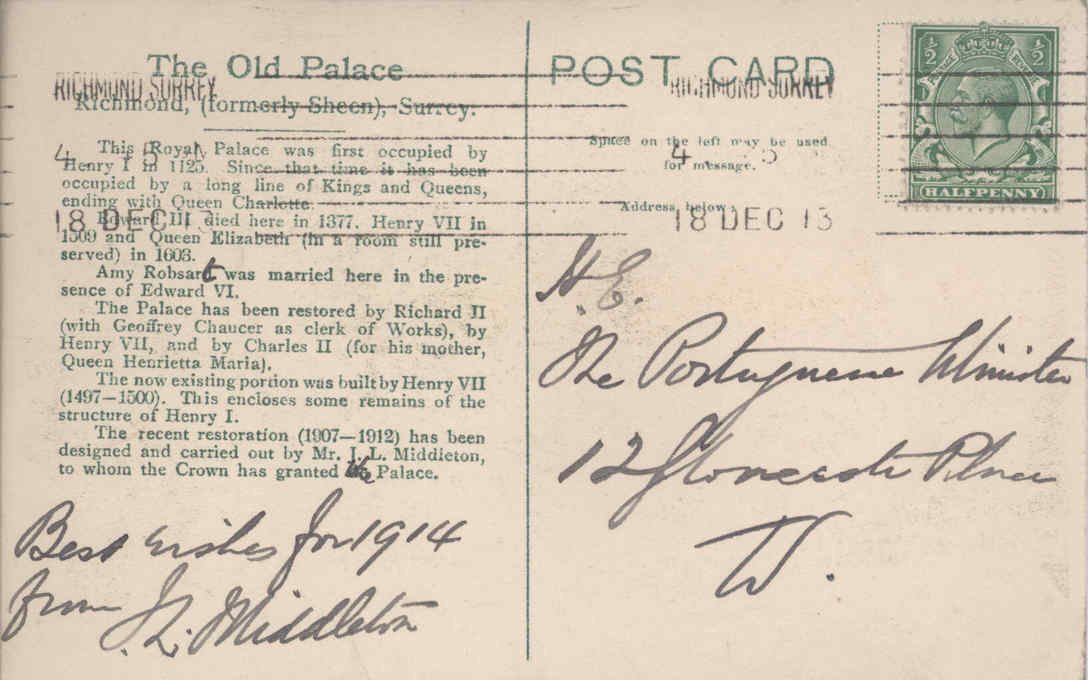 The Old Palace
Richmond, (formerly Sheen), Surrey.
This Royal Palace was first occupied by
Henry I in 1125. Since that time it has been
occupied by a long line of Kings and Queens,
ending with Queen Charlotte.
Edward III died here in 1377. Henry VII in
1509 and Queen Elizabeth (in a room still pre-
served) in 1603.
Amy Robsart was married here in the pre-
sence of Edward VI.
The Palace has been restored by Richard II
(with Geoffrey Chaucer as clerk of Works), by
Henry VII, and by Charles II (for his mother,
Queen Henrietta Maria).
The now existing portion was built by Henry VII
(1497—1500). This encloses some remains of the
structure of Henry I.
The recent restoration (1907—1912) has been
designed and carried out by Mr. J. L. Middleton,
to whom the Crown has granted the Palace.
Best wishes for 1914
from J. L. Middleton
RICHMOND SURREY
18 DEC 1
POST CARD
Space on the left may be used
for message.
Address below:
RICHMOND SURREY
18 DEC 13
½ ½
POSTAGE
HALFPENNY
H. E.
The Portuguese Minister
12 Gloucester Place
W.